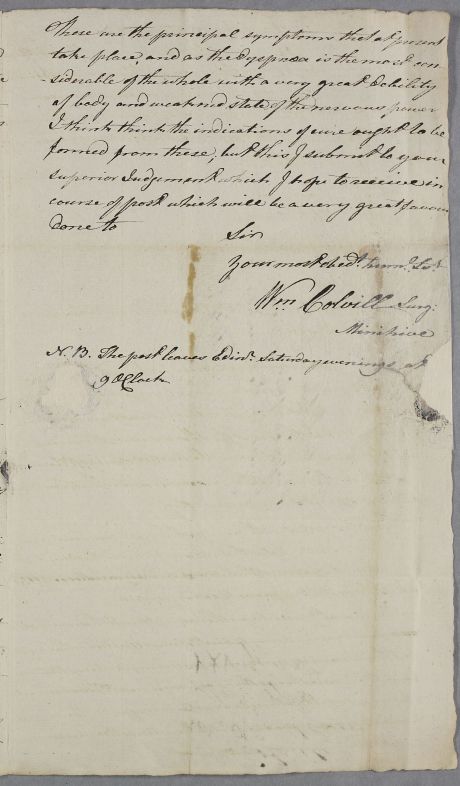 These are the principal symptoms that at present
take place, and as the dyspnœa is the most con
siderable of the whole with a very great debility
of body and weakened state of the nervous power
I think think the indications of cure ought to be
formed from these, but this I submit to your
superior Judgement which I hope to receive in
course of post which will be a very great favour
done to
Sir
Your most obedt. humo. Sert
Wm Colvill Surg:
Minihive
N. B. The post leaves Edinr. Saturday evenings at
9 OClock